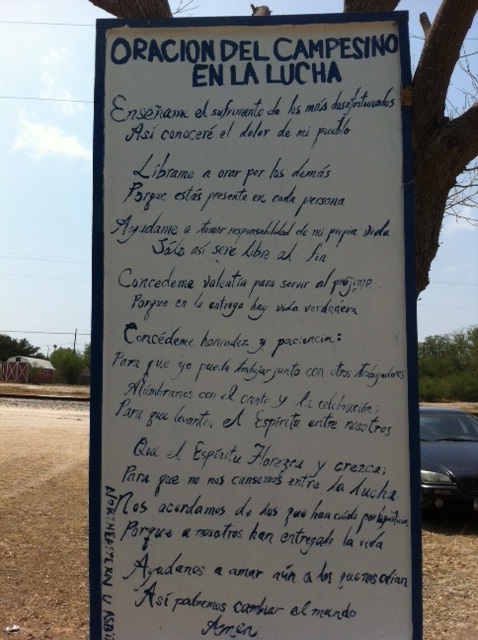 ORACION DEL CAMPESINO
EN LA LUCHA
Enseñame el sufrimento de los más desafortunados
Así conoceré el dolor de mi pueblo
Líbrame a orar por los demás
Porque estás presente en cada persona
Ayudame a tomar responsabilidad de mi propia vida
Sólo así seré libre al fin
Concedeme valentía para servir al prójimo
Porque en la entrega hay vida verdadera
Concédeme honradez y paciencia:
Para que yo pueda trabajar junto con otros trabajadores
Alúmbranos con el canto y la celebración;
Para que levanten el Espíritu entre nosotros
Que el Espíritu Florezca y crezca;
Para que no nos cansemos entre la lucha
Nos acordamos de los que han caido por la justicia
Porque a nosotros han entregado la vida
Ayudanos a amar aún a los que nos odian
Así podremos cambiar el mundo
Amen
NORTHEASTERN U